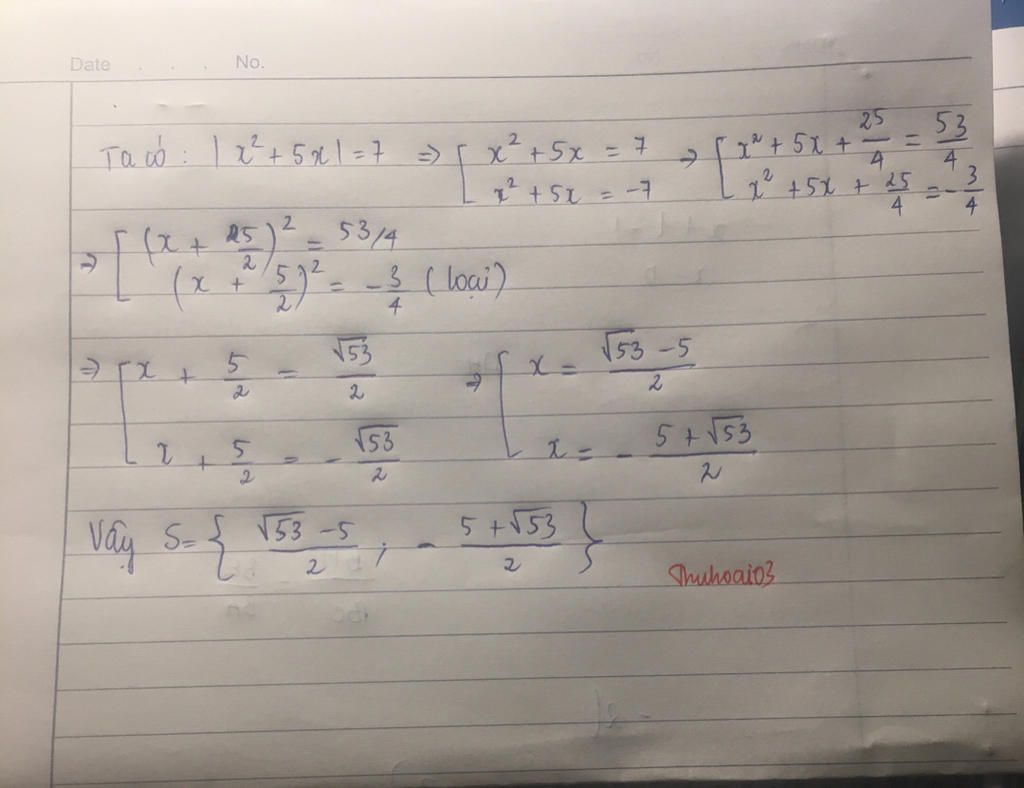 Date . . . No.
Ta có : |x² + 5x| = 7 ⇒ [ x² + 5x = 7 ⇒ [ x² + 5x + 25/4 = 53/4
x² + 5x = -7 x² + 5x + 25/4 = -3/4
⇒ [ (x + 25/2)² = 53/4
(x + 5/2)² = -3/4 (loại)
⇒ [ x + 5/2 = √53/2 ⇒ [ x = (√53 - 5)/2
x + 5/2 = -√53/2 x = -(5 + √53)/2
Vậy S = { (√53 - 5)/2 ; -(5 + √53)/2 }
Thuhoai03